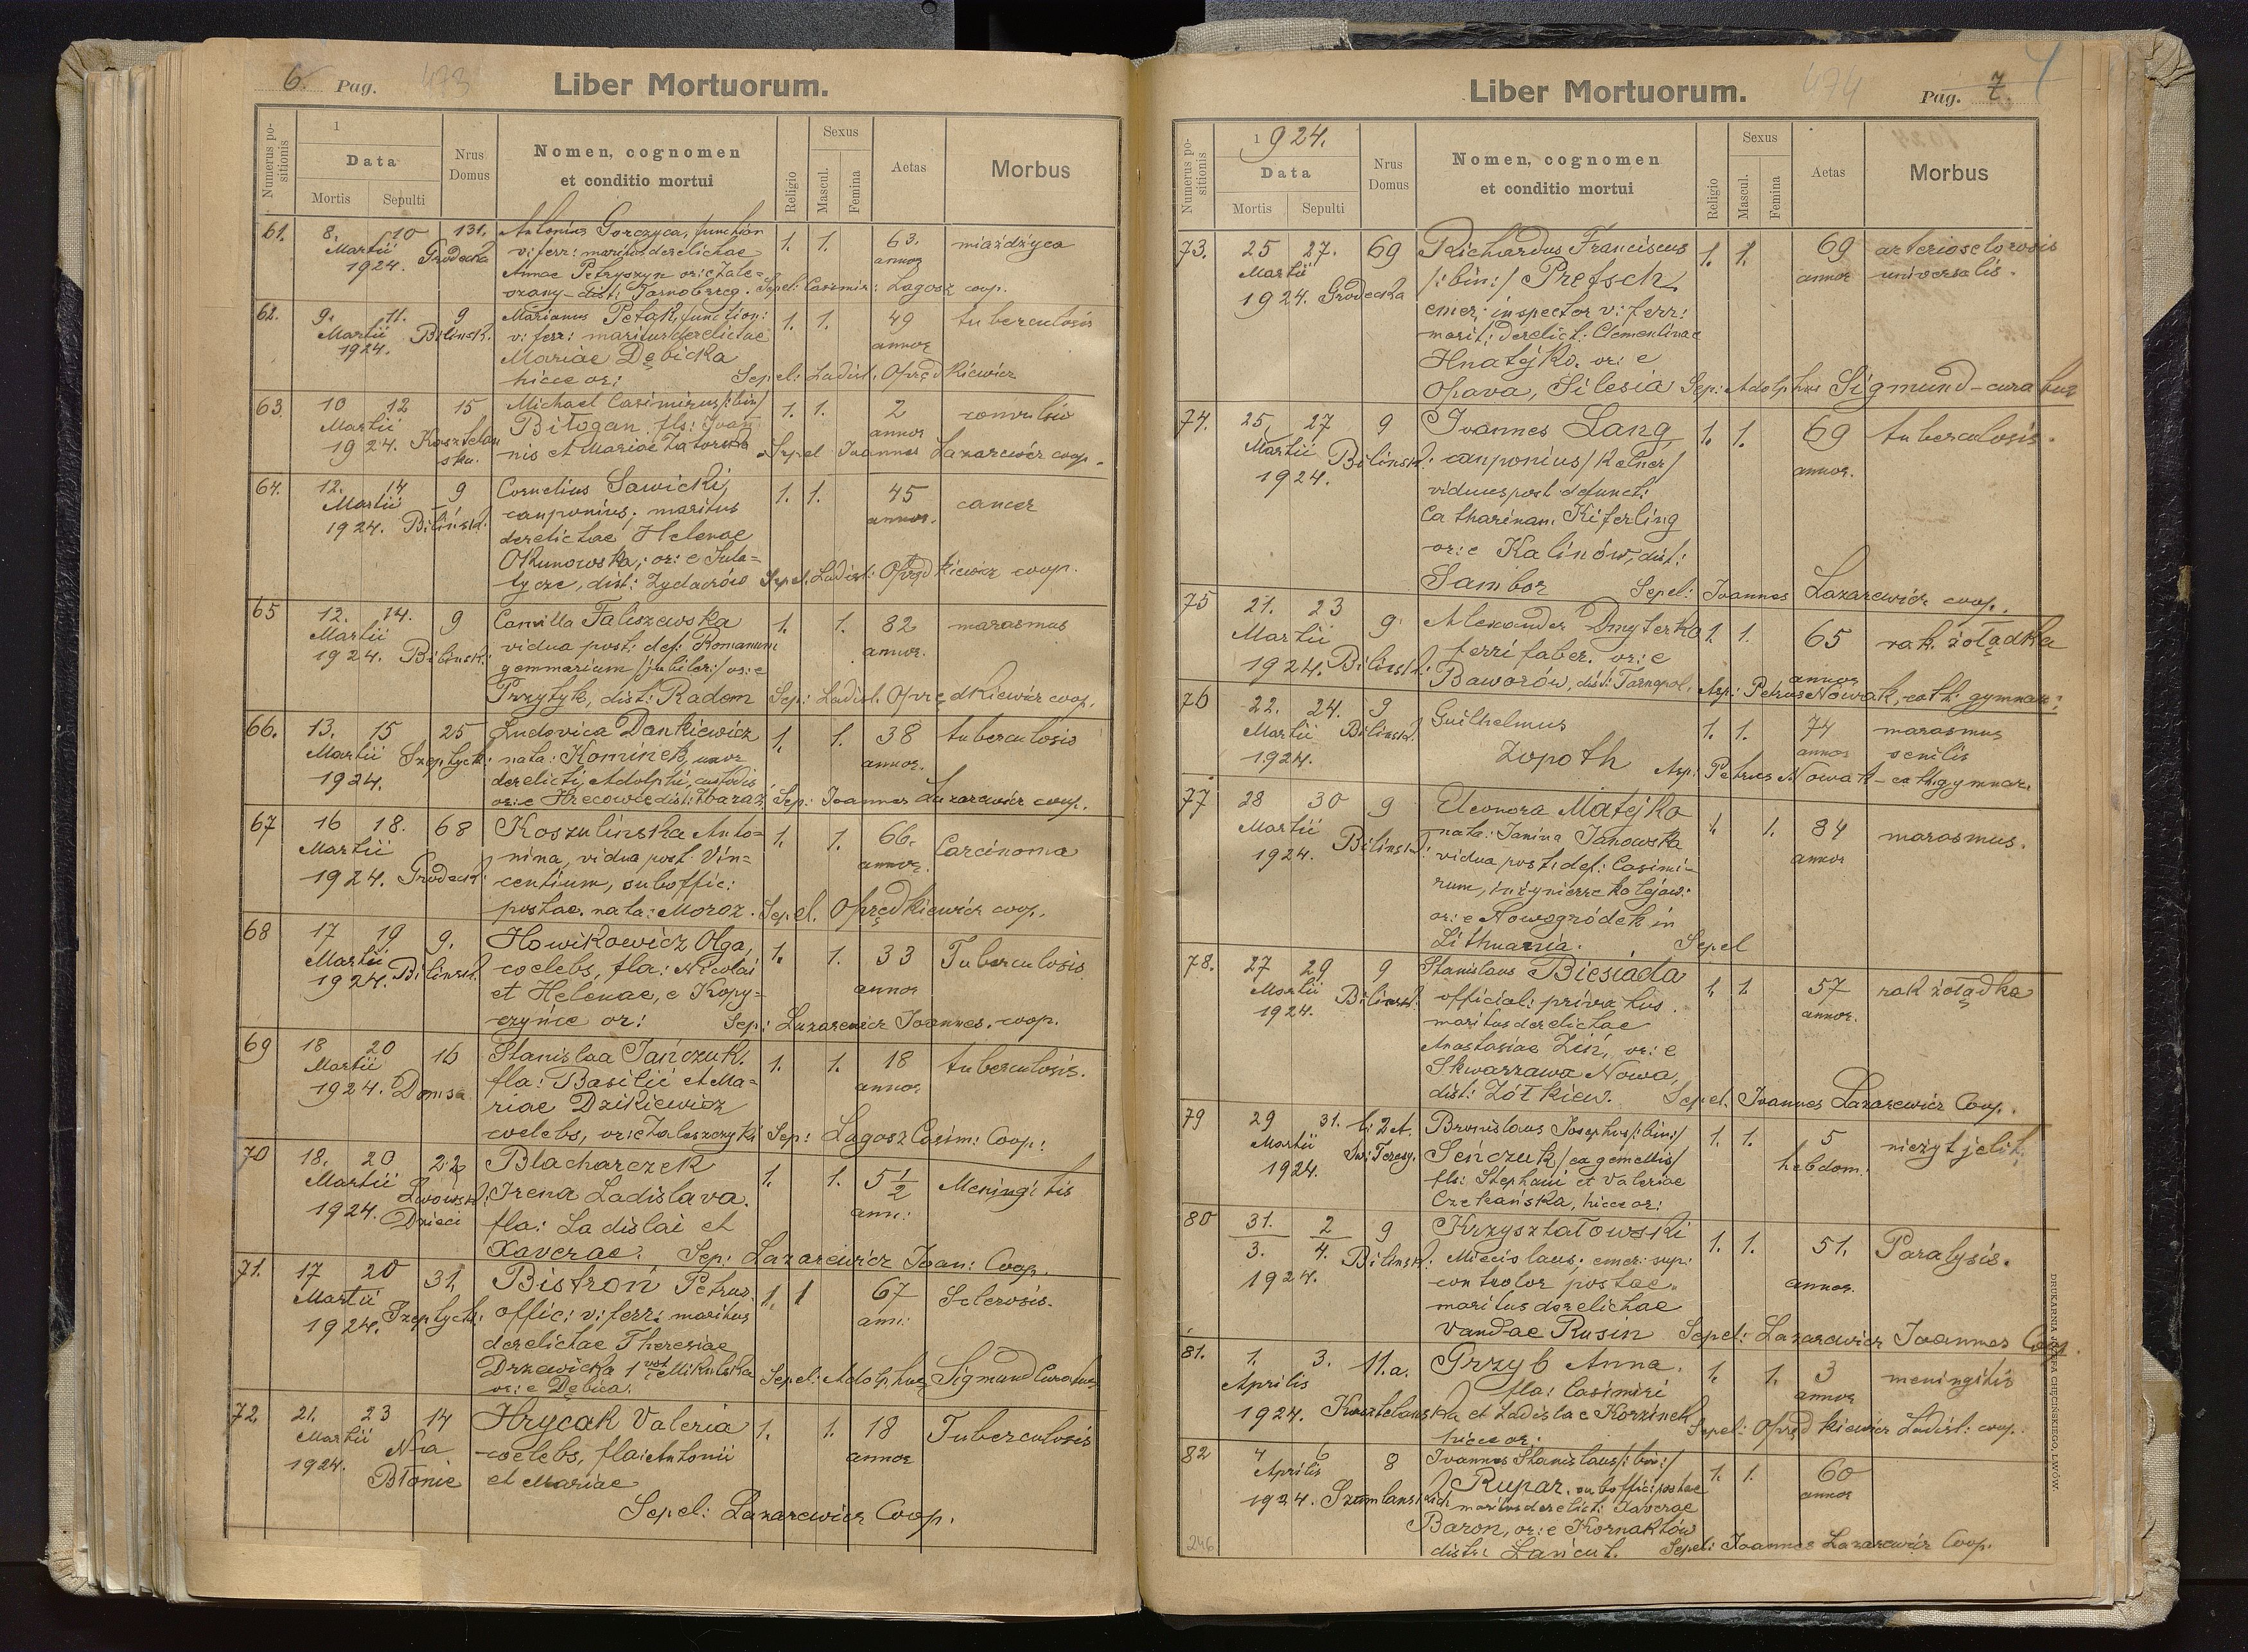 6. Pag. 473
Liber Mortuorum.
Numerus positionis
1
Data
Mortis Sepulti
Nrus Domus
Nomen, cognomen
et conditio mortui
Religio
Sexus
Mascul. Femina
Aetas
Morbus
61. 8. 10 131. Antonius Gorczyca, function 1. 1. 63. miażdżyca
Martii Grodecka vi: ferr: maritus derelictae annor
1924. Annae Petryszyn or: e Zale=
szany - dist: Tarnobrzeg. Sepel: Casimir: Lagosz coop.
62. 9. 11. 9 Marianus Petak, function: 1. 1. 49 tuberculosis
Martii Bilinsk. vi: ferr: maritus derelictae annor
1924. Mariae Dębicka
hicce or: Sepel: Ladisl: Oprędkiewicz
63. 10 12 15 Michael Casimirus /:bin:/ 1. 1. 2 convulsio
Martii Bitogan. fls: Ioan annor
1924. Kasztelanska. nis et Mariae Zatorska Sepel Joannes Lazarewicz coop.
64. 12. 14 9 Cornelius Sawicki, 1. 1. 45 cancer
Martii cauponius; maritus annor.
1924. Bilinsk. derelictae Helenae
Okunowska; or: e Sula=
tycze, dist: Zydaczów Sepel: Ladisl: Oprędkiewicz coop.
65 12. 14. 9 Camilla Faliszewska 1. 1. 82 marasmus
Martii vidua post: def: Romanum annor.
1924 Bilinsk: gemmarium /jubiler:/ or: e
Przytyk, dist: Radom Sep: Ladisl. Oprędkiewicz coop.
66. 13. 15 25 Ludovica Dankiewicz 1. 1. 38 tuberculosis
Martii Szeptyck: nata: Kominek, uxor annor.
1924. derelicti Adolphi, custodis
or: e Hrecowce dist: Zbaraz Sep: Joannes Lazarewicz coop.
67 16 18. 68 Koszulinska Anto= 1. 1. 66. Carcinoma
Martii nina, vidua post Vin= annor.
1924. Grodeck: centium, suboffic:
postae, nata: Moroz. Sepel. Oprędkiewicz coop.
68 17 19 9. Howikowicz Olga, 1. 1. 33 Tuberculosis
Martii coelebs, fla: Nicolai annor
1924. Bilinsk. et Helenae, e Kopy=
czyńce or: Sep: Lazarewicz Joannes. coop.
69 18 20 16 Stanislaa Jańczuk. 1. 1. 18 tuberculosis.
Martii fla: Basilii et Ma= annor
1924. Domsa riae Dzikiewicz
coelebs, or: e Zaleszczyki Sep: Lagosz Casim: Coop:
70 18. 20 22 Blacharczek 1. 1. 5 1/2 Meningitis
Martii Lwowsk. Irena Ladislava. ann:
1924. Dzieci fla: Ladislai et
Xaverae. Sep: Lazarewicz Joan: Coop.
71. 17 20 31. Bistroń Petrus. 1. 1 67 Sclerosis.
Martii Szeptyck: offic: vi: ferr: maritus ann:
1924. derelictae Theresiae
Drzewicka 1 vot: Mikulska Sepel: Adolphus Sigmund Curatus
or: e Dębica.
72. 21. 23 14 Hrycak Valeria 1. 1. 18 Tuberculosis
Martii Na coelebs, fla: Antonii annor
1924. Błonie et Mariae
Sepel: Lazarewicz Coop.
Liber Mortuorum.
474
Pag. 7.
Numerus positionis
1924.
Data
Mortis Sepulti
Nrus Domus
Nomen, cognomen
et conditio mortui
Religio
Sexus
Mascul. Femina
Aetas
Morbus
73. 25 27. 69 Richardus Franciscus 1. 1. 69 arteriosclerosis
Martii /:bin:/ Pretsch annor universalis.
1924. Grodecka emer: inspector vi: ferr:
marit: derelict: Clementinae
Hnatejko. or: e
Opava, Silesia Sep: Adolphus Sigmund - curatus
74. 25, 27 9 Ioannes Lang 1. 1. 69 tuberculosis.
Martii Bilinsk: cauponius /kelner/ annor.
1924. viduus post defunct:
Catharinam Kiferling
or: e Kalinów, dist:
Sambor Sepel: Joannes Lazarewicz coop.
75 21. 23 9. Alexander Dmyterko 1. 1. 65 rak żołądka
Martii ferri faber. or: e annor
1924. Bilinsk: Baworów, dist: Tarnopol. Asp: Petrus Nowak, cath: gymnas:
76 22. 24. 9 Guilhelmus 1. 1. 74 marasmus
Martii Bilinsk. Zopoth annor senilis
1924. Asp: Petrus Nowak - cath gymnas.
77 28 30 9 Eleonora Matejko 1. 1. 84 marasmus.
Martii nata: Janina Janowska annor
1924. Bilinsk: vidua post: def: Casimi=
rum, inżynierze kolejow:
or: e Nowogródek in
Lithuania. Sepel
78. 27 29 9 Stanislaus Biesiada 1. 1. 57 rak żołądka
Martii Bilinsk. official: privatus annor.
1924. maritus derelictae
Anastasiae Ziń, or: e
Skwarzawa Nowa,
dist: Żółkiew. Sepel. Ioannes Lazarewicz Coop.
79 29 31. Bronislaus Josephus /:bin:/ 1. 1. 5 nieżyt jelit
Martii Sw: Teresy. Seńczuk /ex gemellis/ hebdom.
1924. fls: Stephani et Valeriae
Czekańska, hicce or:
80 31. 2 9 Krzyształowski 1. 1. 51. Paralysis.
3. 4. Bilinsk: Miecislaus, emer: sup: annor.
1924. controlor postae.
maritus derelictae
Vandae Rusin Sepel: Lazarewicz Ioannes Coop.
81. 1. 3. 11.a. Grzyb Anna. 1. 1. 3 meningitis
Aprilis fla: Casimiri annor
1924. Kasztelanska et Ladislae Korzinek
hicce or: Sepel: Oprędkiewicz Ladisl: coop.
82 4 6 8 Ioannes Stanislaus /:bin:/ 1. 1. 60
Aprilis Rupar. suboffic: postae annor
1924. Szumlanskich maritus derelict: Xaverae
Baron, or: e Kornaktów
distr: Łańcut. Sepel: Joannes Lazarewicz Coop.
246
DRUKARNIA JÓZEFA CHĘCIŃSKIEGO, LWÓW.